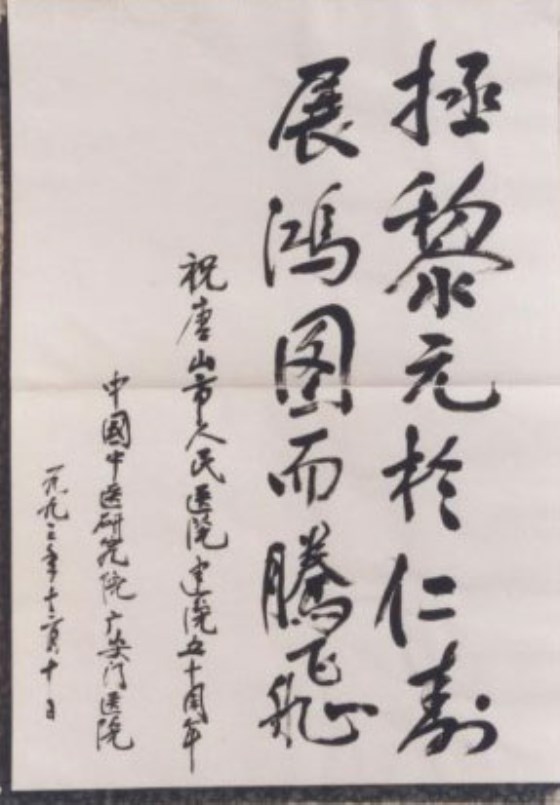 拯黎元於仁寿
展鸿图而腾飞
祝唐山市人民医院建院五十周年
中國中医研究院广安门医院
一九九二年十二月十日